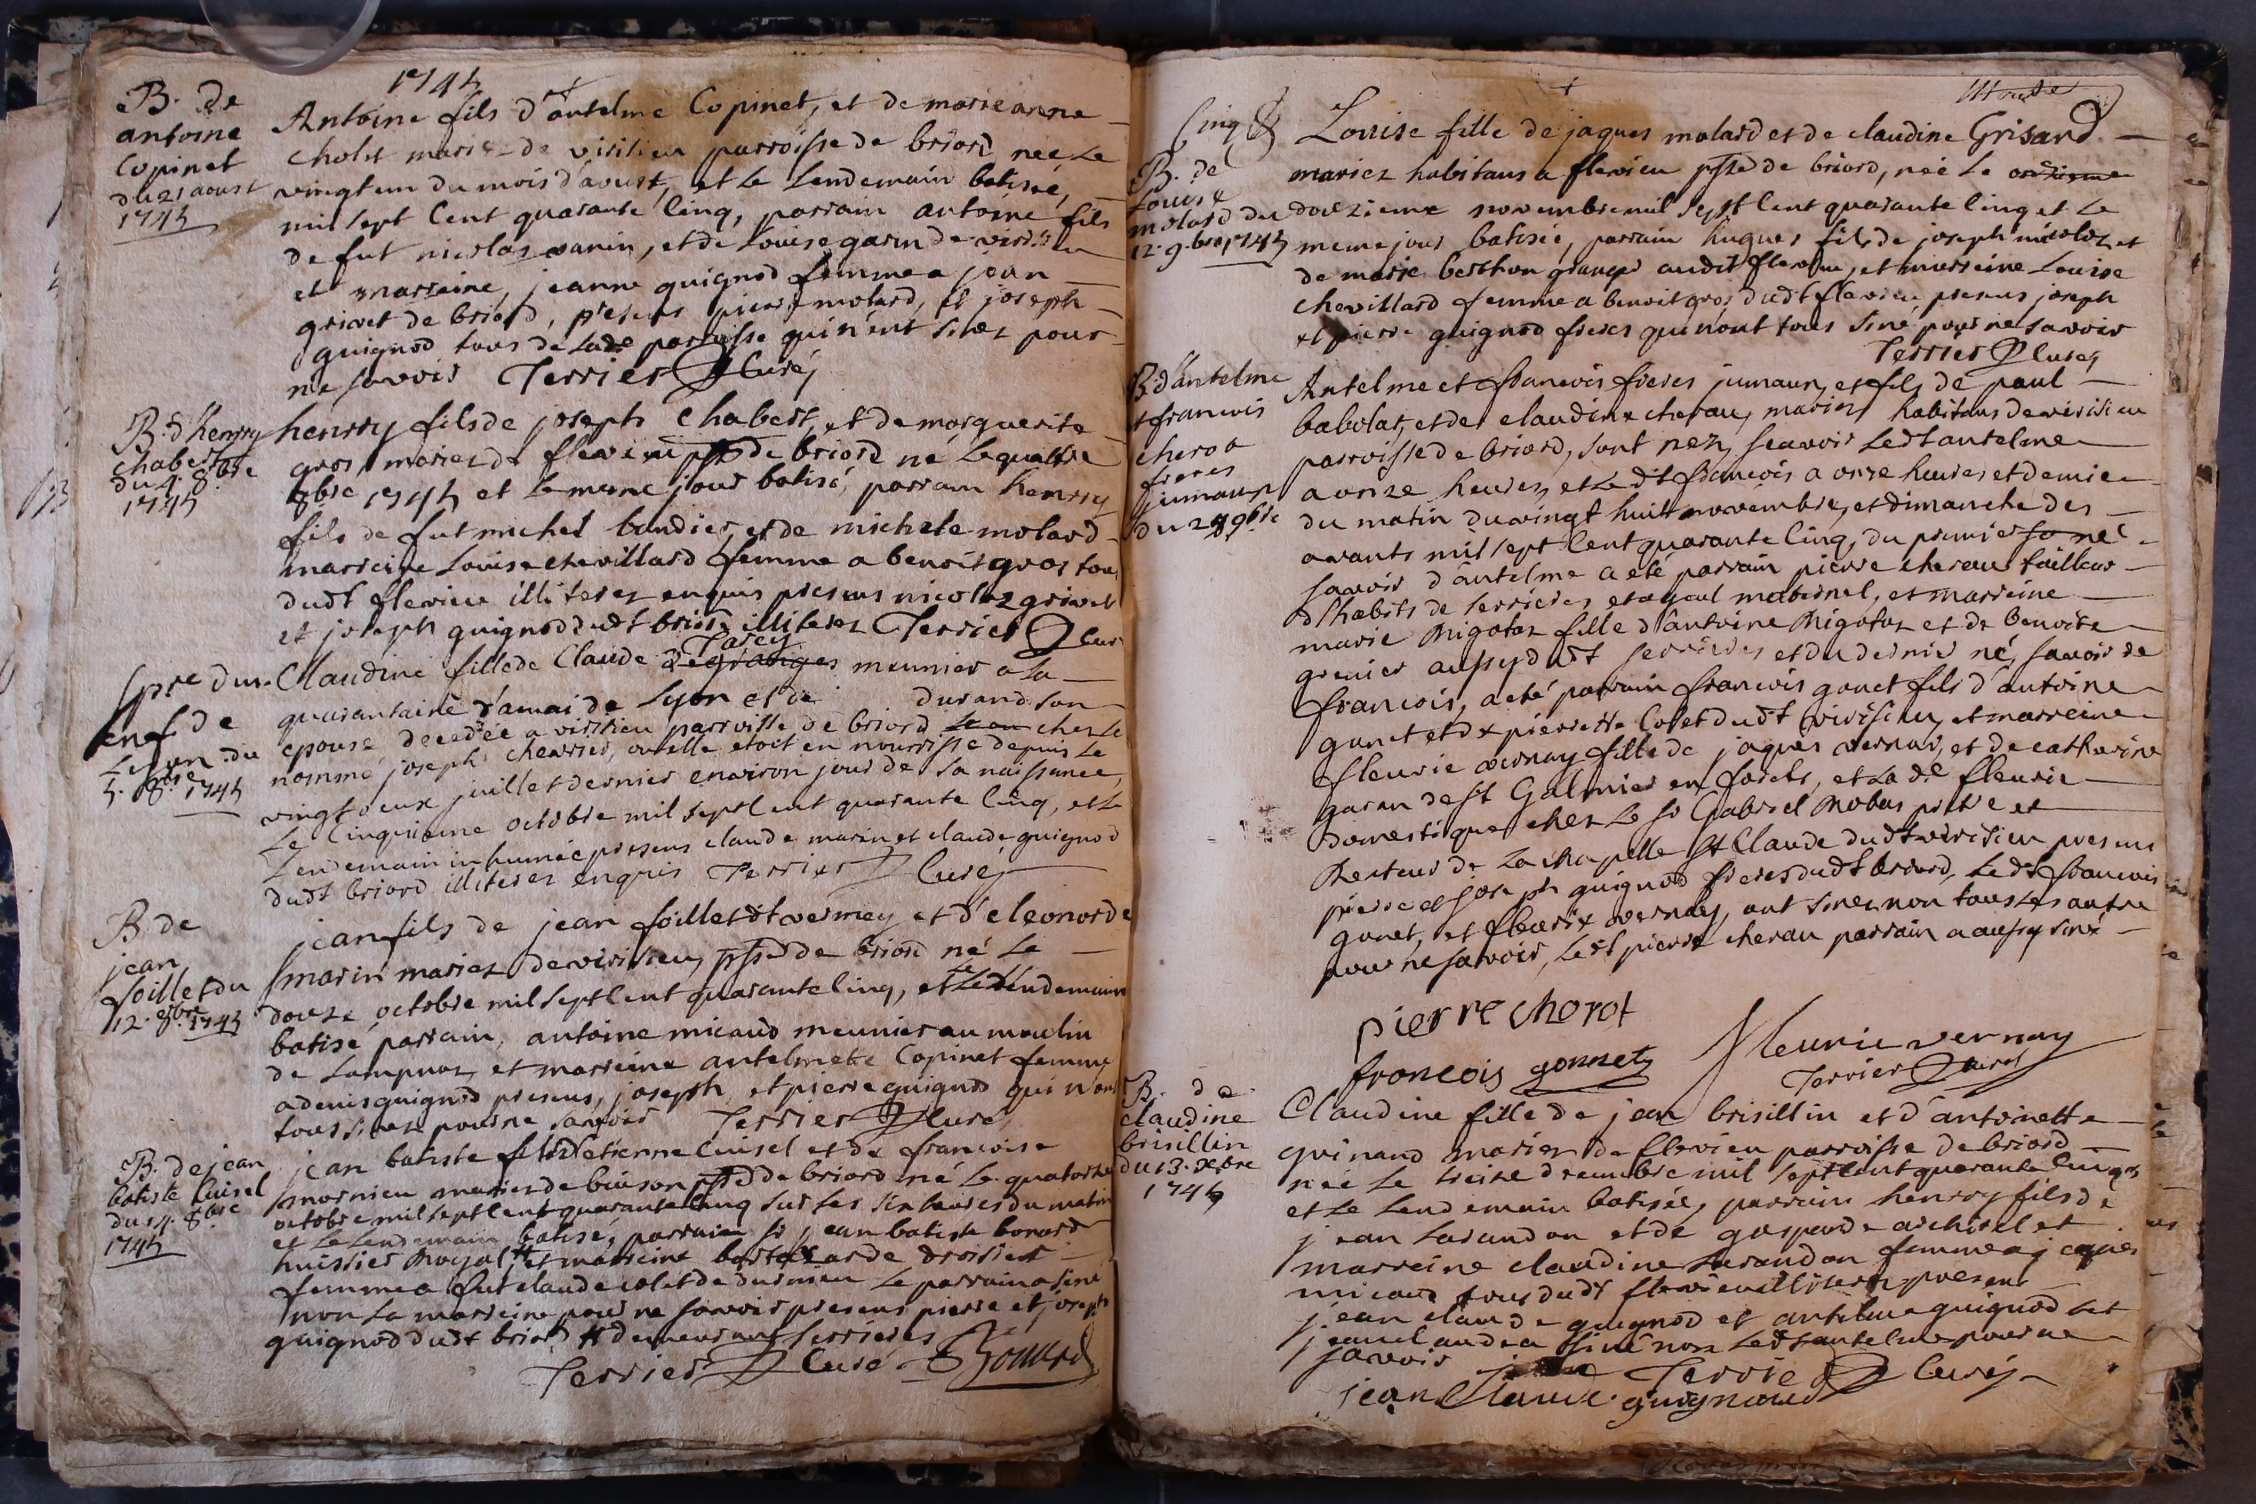 1745
B. de
antoine
Copinet
du 21 aoust
1745
Antoine fils d'antelme Copinet, et de marie anne
cholet mariez de virisieu parroisse de briord née le
vingt un du mois d'aoust, et le lendemain batisée,
mil sept cent quarante cinq, parrain antoine fils
de fut nicolas varin, et de Louise garin de
et marreine, jeanne quignod femme a jean
grivet de briord, presens pierre molard, et joseph
quignod tous de lade parroisse qui n'ent sinez pour
ne savoir Terrier Curéz
B. d'henrry
chabert
du 4. 8.bre
1745
henrry fils de joseph Chabert, et de marguerite
gros mariez de flevieu psse de briord né le quattre
8bre 1745 et le meme jour batisé, parrain henrry
fils de fut michel baudier, et de michele molard
marreine Louise chevillard femme a benoit gros tous
dudt flevieu illiterez enquis presens nicolaz grivet
et joseph quignod dudt briord illiterez Terrier Cur
enf de
Lyon du
5. 8.bre 1745
Tarey
Claudine fille de Claude degranges meunier a la
quarantaine d'amai de Lyon et de durand son
epouse, decedée a virisieu parroisse de briord chez le
nommé joseph chevrier, ou elle etoit en nourrisse depuis le
vingt deux juillet dernier environ jour de sa naissance,
Le Cinquieme octobre mil sept cent quarante cinq, et le
Lendemain inhumée presens claude marin et claude quignod
dudt briord illiterez enquis Terrier Curéz
B de
jean
foillet du
12. 8.bre 1745
jean fils de jean foillet dt vermey et d'eleonorde
marin mariez de virisieu, psse de briord né le
douze octobre mil sept cent quarante cinq, et le lendemain
batisé parrain, antoine micaud meunier au moulin
de Lampnaz, et marreine antelmete Copinet femme
a denis quignod presens, joseph et pierre quignod qui n'ont
tous sinez pour ne savoir Terrier Curé
B. de jean
batiste Cuisel
du 14. 8bre
1745
jean batiste fils d'etienne Cuisel et de francoise
mornieu mariez de buison psse de briord né le quatorze
octobre mil sept cent quarante cinq sur les six heures du matin
et le Lendemain batisé, parrain sr jean batiste bonard
huissier Royal, # et marreine
femme a fut claude colet de durnieu le parrain a siné
non la marreine pour ne savoir presens pierre et joseph
quignod dudt briord # demeurant serrieres
Terrier Curé Bonard
Cinq
B. de
Louise
molard du
12. 9.bre 1745
Louise fille de jaques molard et de claudine Grisard
mariez habitans a flevieu psse de briord, née le onzieme
douzieme novembre mil sept cent quarante cinq et le
meme jour batisée, parrain hugues fils de joseph nicolaz et
de marie berthon granger audit flevieu, et marreine Louise
chevillard femme a benoit gros dudt flevieu presens joseph
et pierre quignod freres qui nont tous siné pour ne savoir
Terrier Curez
B. d'antelme
et francois
cherao
freres
jumaux
du 28 9bre
Antelme et francois freres jumaux, et fils de paul
babolat, et de claudine cherau, mariez habitans de virisieu
parroisse de briord, sont nez, scavoir ledt antelme
a onze heures, et le dt francois a onze heures et demie
du matin du vingt huit novembre, et dimanche des
avants mil sept cent quarante cinq, du premier né
savoir d'antelme a eté parrain pierre cherau tailleur
d'habits de serrieres, et ayeul maternel, et marreine
marie Rigotaz fille d'antoine Rigotaz et de benoite
grenier aussy dudt serrieres et du dernier né, savoir de
francois, a eté parrain francois gonet fils d'antoine
gonet et de pierrette Colet dudt virisieu, et marreine
fleurie vernay fille de jaques vernay, et de catherine
garan de st Galmier en forets, et lade fleurie
domestique chez le sr Gabriel Robas pretre et
Recteur de la chapelle st Claude dudt virisieu presens
pierre et joseph quignod freres dudt briord, ledt francois
gonet, et fleurie vernay, ont sinez non tous les autre
pour ne savoir, ledt pierre cherau parrain a aussy siné
pierre chorot
francois gonnet Fleurie vernay
Terrier Curez
B. de
claudine
brisillin
du 13. xbre
1745
Claudine fille de jean brisillin et d'antoinette
quinand mariez de flevieu parroisse de briord
née le treize decembre mil sept cent quarante cinq
et le lendemain batisée, parrain henrry fils de
jean larandon et de gasparde archirel et
marreine claudine larandon femme a jaques
micaud tous dudt flevieu illiterez presens
jean claude quignod et antelme quignod ledt
jean claude a siné non ledt antelme pour ne
savoir Terrier Curéz
jean Claude quignod